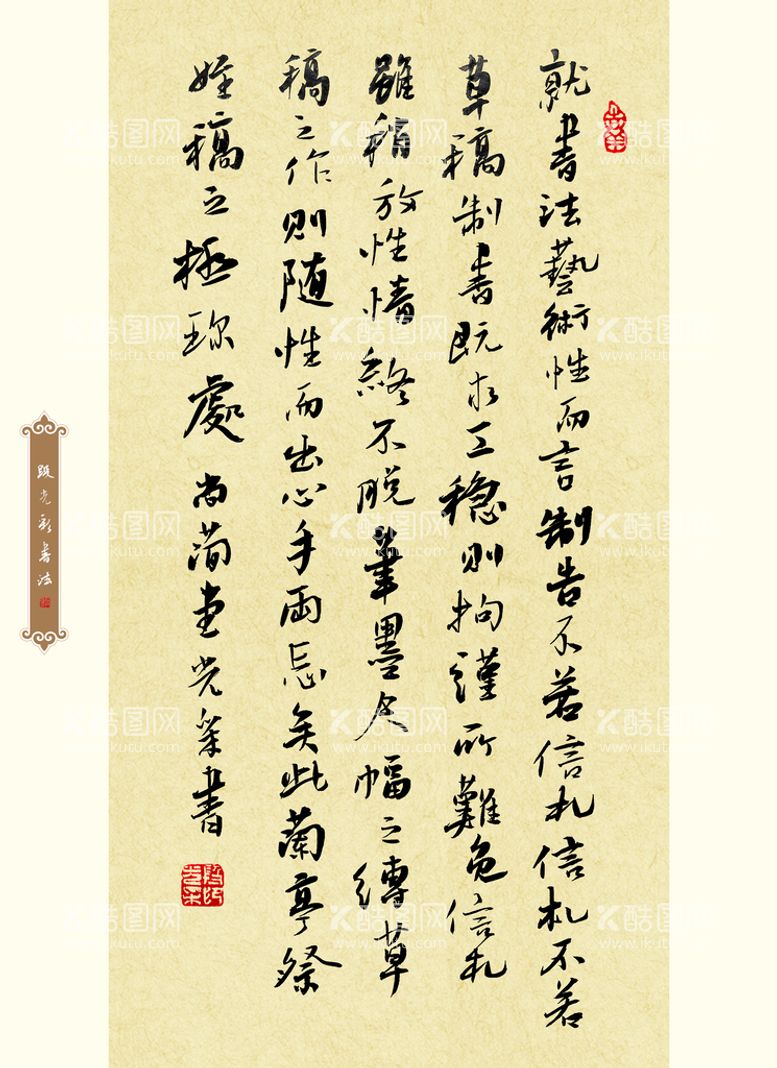 就書法藝術性而言制告不若信札信札不若
草稿制書既求工穩則拘謹所難免信札
雖稍放性情終不脫筆墨尺幅之縛草
稿之作則随性而出心手兩忘矣此蘭亭祭
姪稿之極珎處 尚堂光書
光彩書法
酷图网
www.ikutu.com